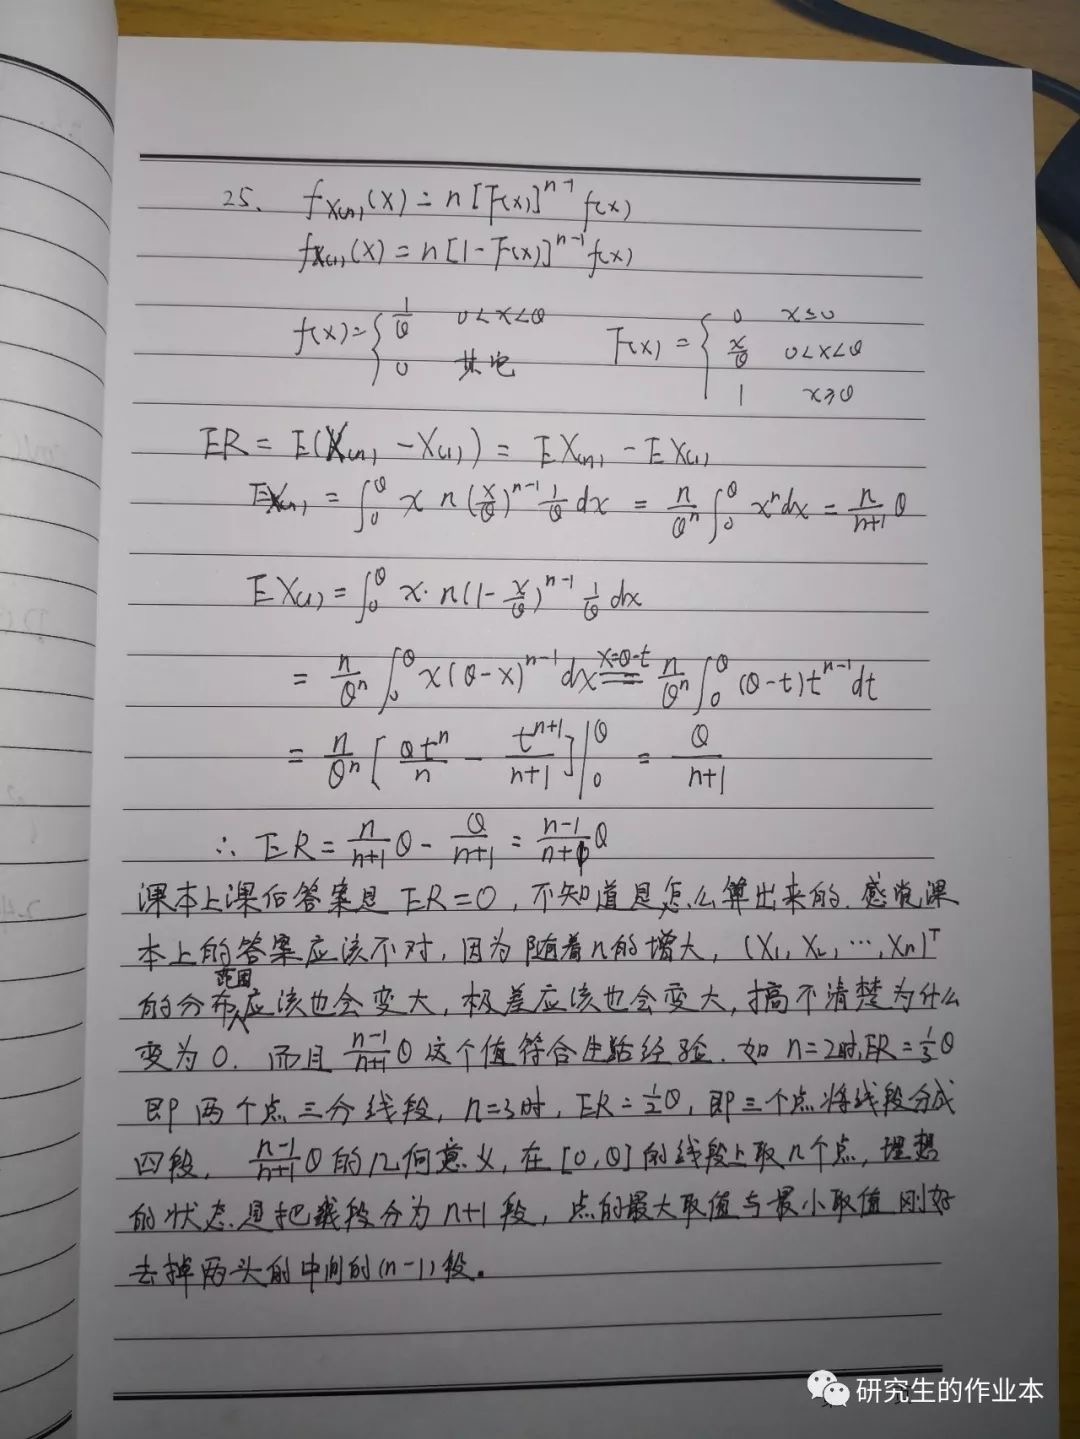 25. f_{X(n)}(x) = n[F(x)]^{n-1} f(x)
f_{X(1)}(x) = n[1-F(x)]^{n-1} f(x)
f(x) = { 1/θ 0<x<θ ; 0 其它 F(x) = { 0 x≤0 ; x/θ 0<x<θ ; 1 x≥θ
ER = E(X(n) - X(1)) = EX(n) - EX(1)
EX(n) = ∫₀^θ x n (x/θ)^{n-1} 1/θ dx = n/θⁿ ∫₀^θ xⁿ dx = n/(n+1) θ
EX(1) = ∫₀^θ x·n(1-x/θ)^{n-1} 1/θ dx
= n/θⁿ ∫₀^θ x(θ-x)^{n-1} dx x=θ-t == n/θⁿ ∫₀^θ (θ-t)t^{n-1} dt
= n/θⁿ [θtⁿ/n - t^{n+1}/(n+1)] |₀^θ = θ/(n+1)
∴ ER = n/(n+1) θ - θ/(n+1) = (n-1)/(n+1) θ
课本上课后答案是 ER=0,不知道是怎么算出来的.感觉课
本上的答案应该不对,因为随着n的增大,(X₁,X₂,…,Xn)ᵀ
的分布范围应该也会变大,极差应该也会变大,搞不清楚为什么
变为0.而且 (n-1)/(n+1) θ 这个值符合生活经验.如 n=2时,ER=1/3 θ
即两个点三分线段,n=3时,ER=1/2 θ,即三个点将线段分成
四段,(n-1)/(n+1) θ 的几何意义,在[0,θ]的线段上取n个点,理想
的状态是把线段分为n+1段,点的最大取值与最小取值刚好
去掉两头的中间的(n-1)段。
研究生的作业本